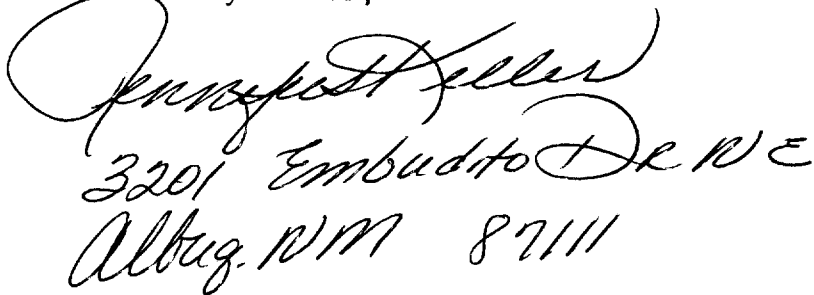 Jennifer Keller
3201 Embudito DR NE
Albuq. NM 87111